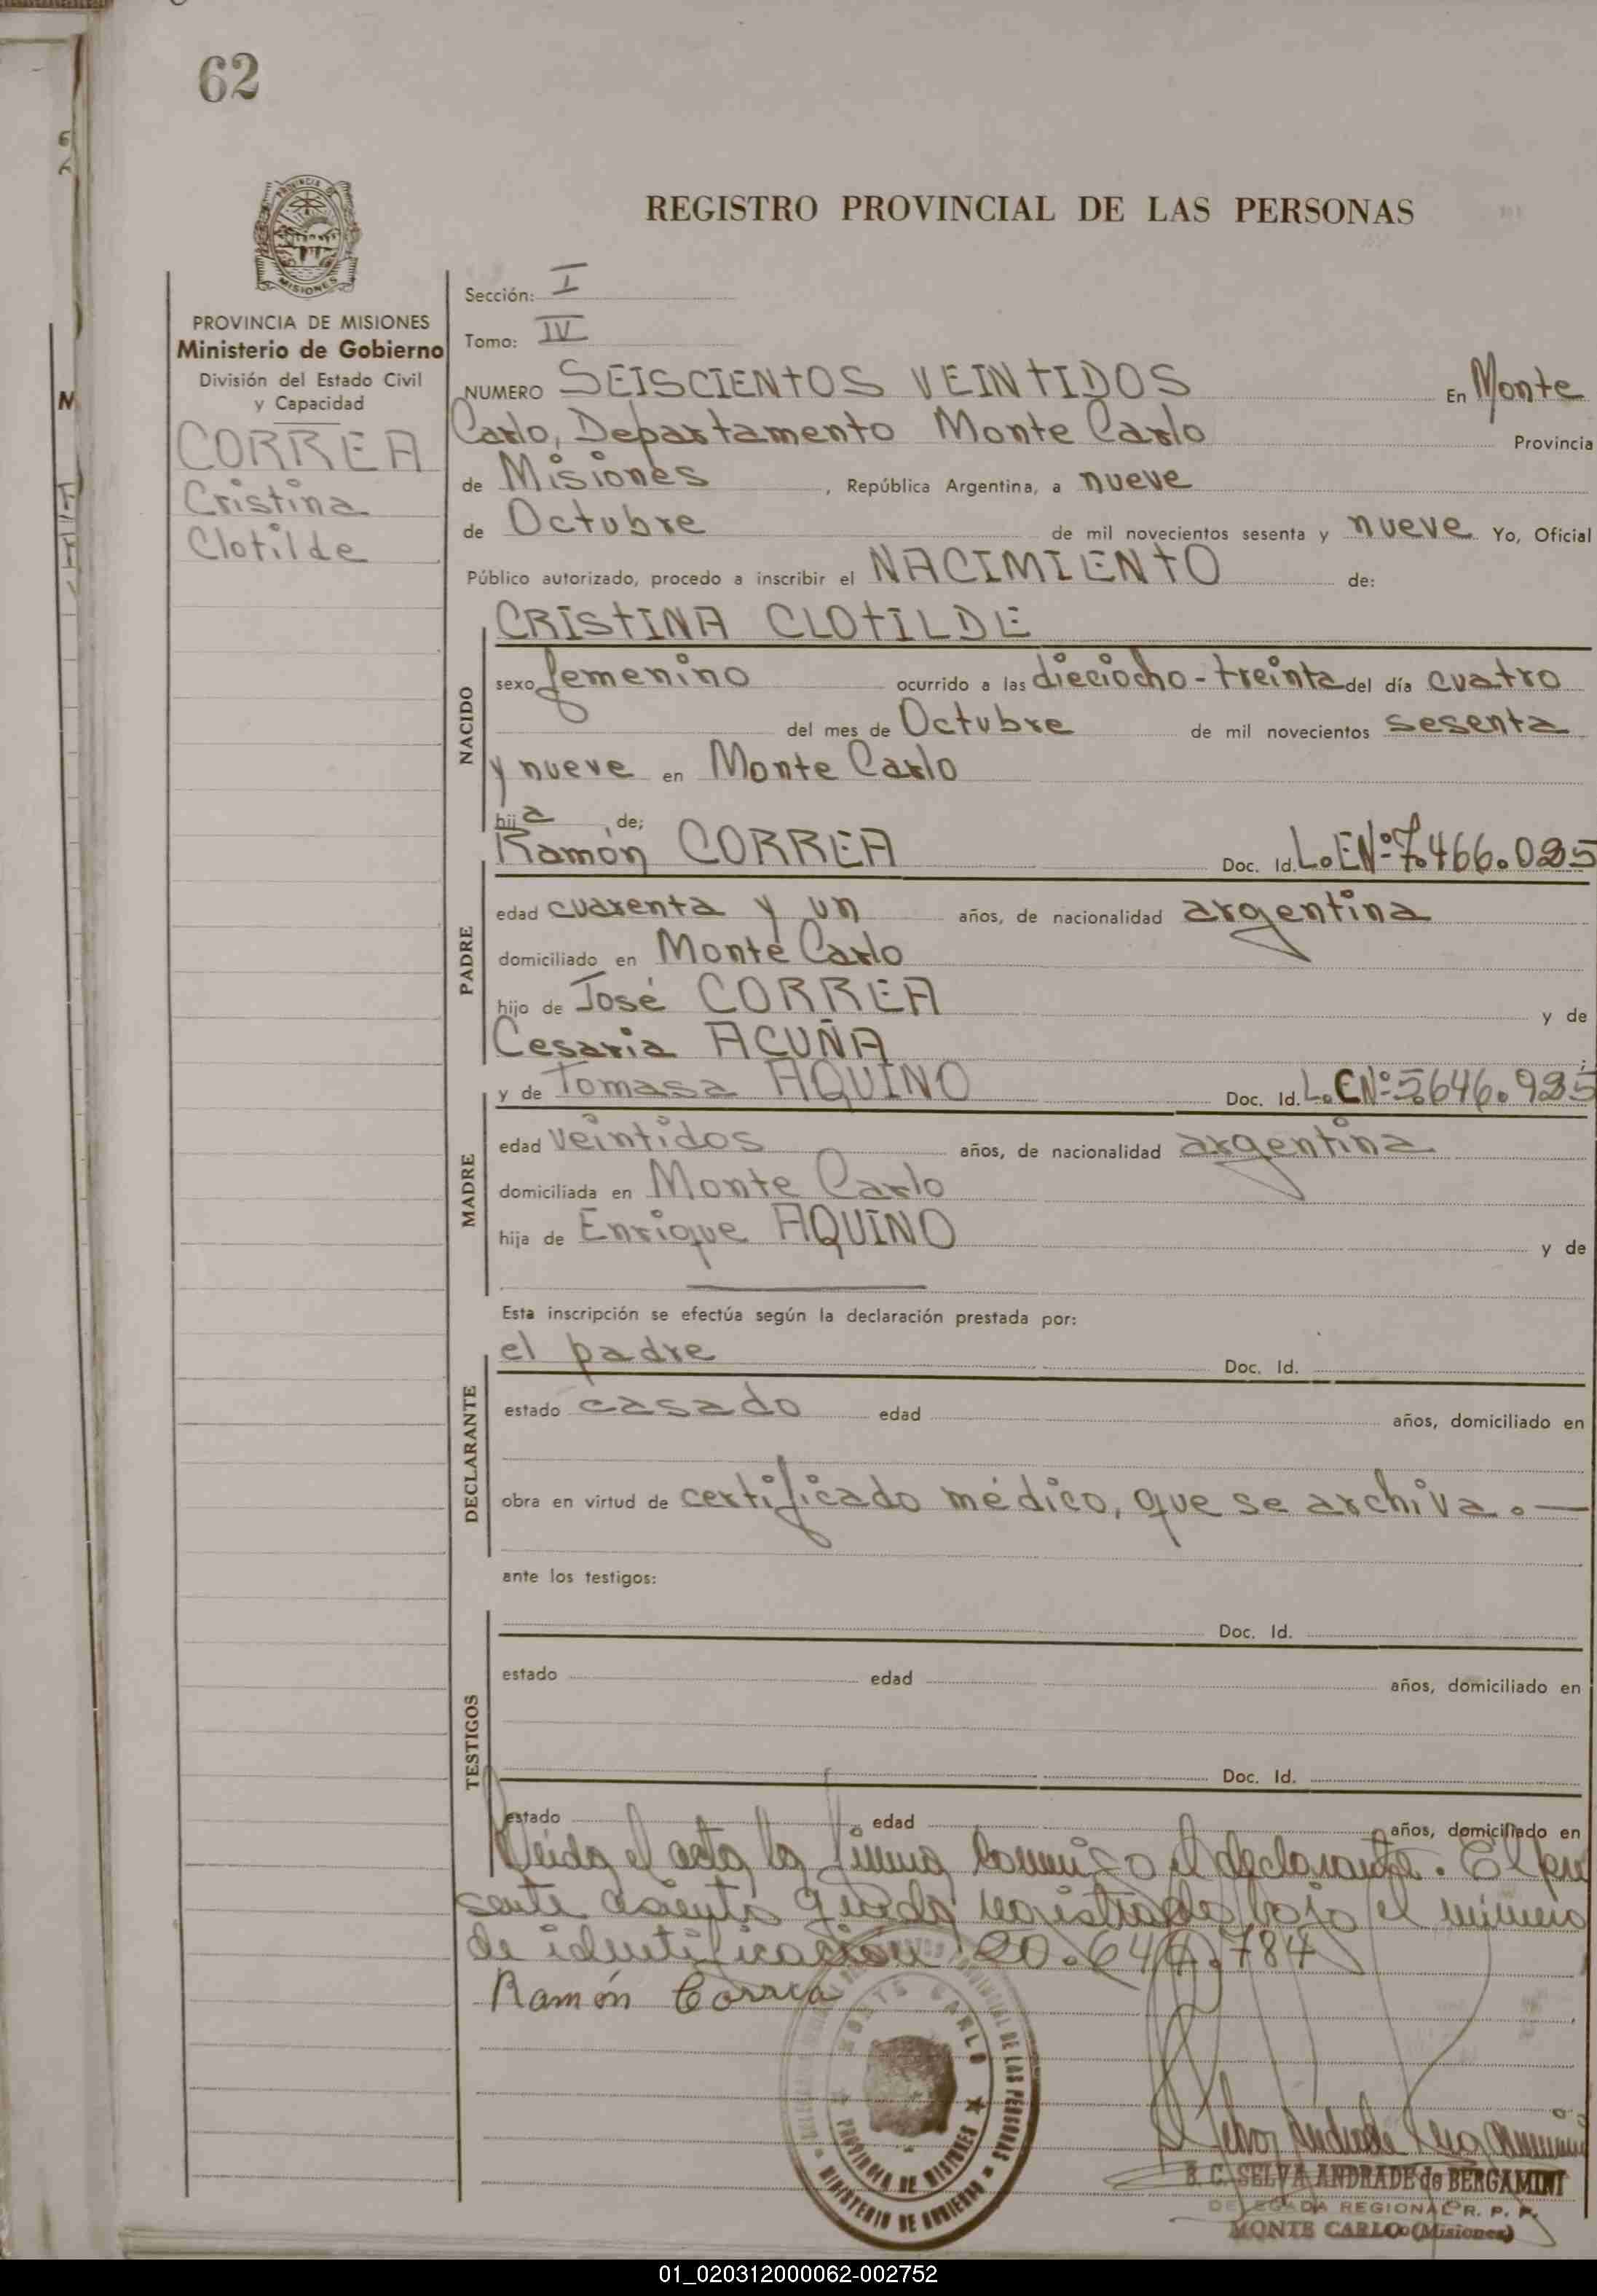 62
REGISTRO PROVINCIAL DE LAS PERSONAS
PROVINCIA DE MISIONES
MISIONES
PROVINCIA DE MISIONES
Ministerio de Gobierno
División del Estado Civil
y Capacidad
CORREA
Cristina
Clotilde
Sección: I
Tomo: IV
NUMERO SEISCIENTOS VEINTIDOS En Monte
Carlo, Departamento Monte Carlo Provincia
de Misiones, República Argentina, a nueve
de Octubre de mil novecientos sesenta y nueve Yo, Oficial
Público autorizado, procedo a inscribir el NACIMIENTO de:
NACIDO
CRISTINA CLOTILDE
sexo femenino ocurrido a las dieciocho-treinta del día cuatro
del mes de Octubre de mil novecientos sesenta
y nueve en Monte Carlo
hija de;
PADRE
Ramón CORREA Doc. Id. L.E.Nº 7.466.025
edad cuarenta y un años, de nacionalidad argentina
domiciliado en Monte Carlo
hijo de José CORREA y de
Cesaria ACUÑA
MADRE
y de Tomasa AQUINO Doc. Id. L.C.Nº 5.646.925
edad veintidos años, de nacionalidad argentina
domiciliada en Monte Carlo
hija de Enrique AQUINO y de
Esta inscripción se efectúa según la declaración prestada por:
DECLARANTE
el padre Doc. Id.
estado casado edad años, domiciliado en
obra en virtud de certificado médico, que se archiva.—
ante los testigos:
TESTIGOS
Doc. Id.
estado edad años, domiciliado en
Doc. Id.
estado edad años, domiciliado en
Leida el acta la firma conmigo el declarante. El pre
sente asiento queda registrado bajo el número
de identificación 20.644.784
Ramón Correa
MONTE CARLO
PROVINCIAL DE LAS PERSONAS
PROVINCIA DE MISIONES
MINISTERIO DE GOBIERNO
B. C. SELVA ANDRADE de BERGAMINI
DELEGADA REGIONAL R. P. P.
MONTE CARLO (Misiones)
01_020312000062-002752